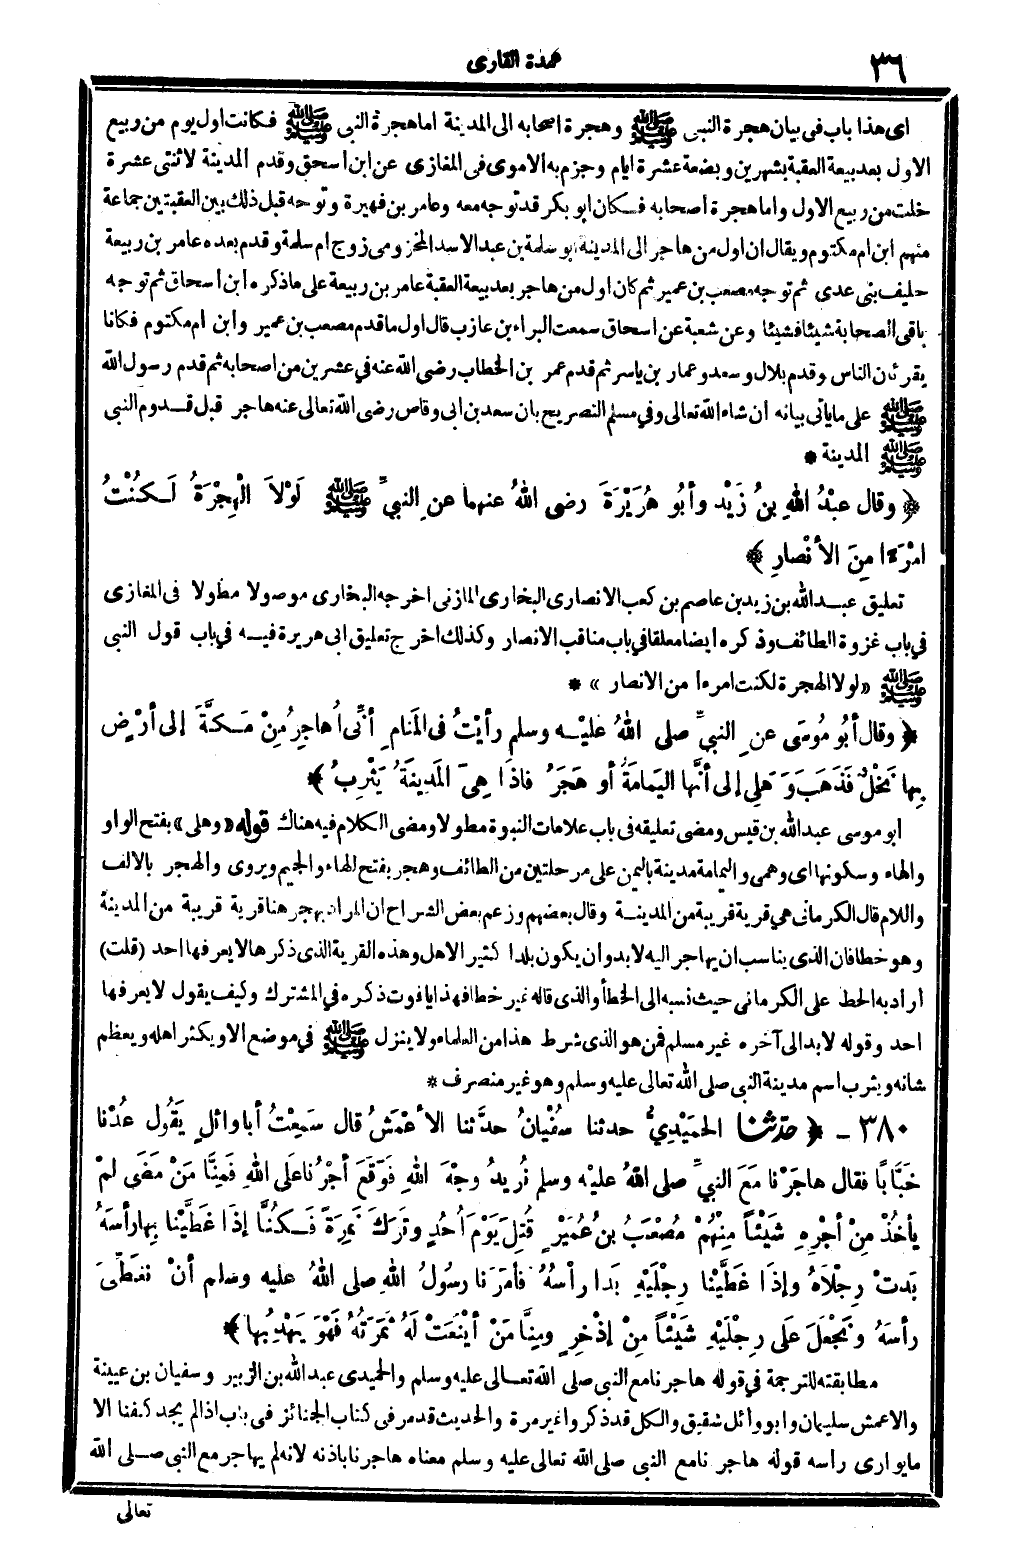 ٣٦
عمدة القارى
اى هذا باب فى بيان هجرة النبى ﷺ وهجرة اصحابه الى المدينة اما هجرة النبى ﷺ فكانت اول يوم من ربيع
الاول بعد بيعة العقبة بشهرين وبضعة عشرة ايام وجزم به الاموى فى المغازى عن ابن اسحق وقدم المدينة لاثنتى عشرة
خلت من ربيع الاول واما هجرة اصحابه فكان ابو بكر قد توجه معه وعامر بن فهيرة وتوجه قبل ذلك بين العقبتين جماعة
منهم ابن ام مكتوم ويقال ان اول من هاجر الى المدينة ابو سلمة بن عبد الاسد المخزومى زوج ام سلمة وقدم بعده عامر بن ربيعة
حليف بنى عدى ثم توجه مصعب بن عمير ثم كان اول من هاجر بعد بيعة العقبة عامر بن ربيعة على ما ذكره ابن اسحاق ثم توجه
باقى الصحابة شيئا فشيئا وعن شعبة عن اسحاق سمعت البراء بن عازب قال اول ما قدم مصعب بن عمير وابن ام مكتوم فكانا
يقرئان الناس وقدم بلال وسعد وعمار بن ياسر ثم قدم عمر بن الخطاب رضى الله عنه فى عشرين من اصحابه ثم قدم رسول الله
ﷺ على ما ياتى بيانه ان شاء الله تعالى وفي مسلم التصريح بان سعد بن ابى وقاص رضى الله تعالى عنه هاجر قبل قدوم النبى
ﷺ المدينة *
﴿ وقال عَبْدُ اللهِ بنُ زَيْدٍ وأبُو هُرَيْرَةَ رضى اللهُ عنهما عنِ النبيِّ ﷺ لَوْلاَ الْهِجْرَةُ لَكُنْتُ
امْرَءًا مِنَ الأنْصارِ ﴾
تعليق عبد الله بن زيد بن عاصم بن كعب الانصارى البخارى المازنى اخرجه البخارى موصولا مطولا فى المغازى
في باب غزوة الطائف وذكره ايضا معلقا في باب مناقب الانصار وكذلك اخرج تعليق ابى هريرة فيه في باب قول النبى
ﷺ «لولا الهجرة لكنت امرءا من الانصار» *
﴿ وقال أبُو مُوسَى عنِ النبيِّ صلى اللهُ عليْه وسلم رأيْتُ فى المَنامِ أنِّى أُهاجِرُ مِنْ مَكَّةَ إلى أرْضٍ
بِها نَخْلٌ فَذَهَبَ وَهَلِى إلى أنَّها اليَمامَةُ أو هَجَرُ فاذَا هِىَ المَدِينَةُ يَثْرِبُ ﴾
ابو موسى عبد الله بن قيس ومضى تعليقه فى باب علامات النبوة مطولا ومضى الكلام فيه هناك قوله «وهلى» بفتح الواو
والهاء وسكونها اى وهمى واليمامة مدينة باليمن على مرحلتين من الطائف وهجر بفتح الهاء والجيم ويروى والهجر بالالف
واللام قال الكرمانى هي قرية قريبة من المدينة وقال بعضهم وزعم بعض الشراح ان المراد بهجر هنا قرية قريبة من المدينة
وهو خطا فان الذى يناسب ان يهاجر اليه لا بد وان يكون بلدا كثير الاهل وهذه القرية التى ذكرها لا يعرفها احد (قلت)
اراد به الحط على الكرمانى حيث نسبه الى الخطأ والذى قاله غير خطا فهذا ياقوت ذكره في المشترك وكيف يقول لا يعرفها
احد وقوله لابد الى آخره غير مسلم فمن هو الذى شرط هذا من العلماء ولا ينزل ﷺ في موضع الا ويكثر اهله ويعظم
شانه ويثرب اسم مدينة النبى صلى الله تعالى عليه وسلم وهو غير منصرف *
٣٨٠ - ﴿ حدثنا الحمَيْدِيُّ حدثنا سُفْيانُ حدَّثنا الأعْمَشُ قال سَمِعْتُ أبا وائلٍ يَقُول عُدْنا
خَبَّابًا فقال هاجَرْنا مَعَ النبيِّ صلى اللهُ عليْه وسلم نُريدُ وجْهَ اللهِ فَوَقَعَ أجْرُنا عَلَى اللهِ فَمِنَّا مَنْ مَضَى لمْ
يأخُذْ مِنْ أجْرِهِ شَيْئاً مِنْهُمْ مُصْعَبُ بنُ عُمَيْرٍ قُتِلَ يَوْمَ أُحُدٍ وتَرَكَ نَمِرَةً فَكُنَّا إذَا غَطَّيْنا بِها رأسَهُ
بَدتْ رِجْلاَهُ وإذَا غَطَّيْنا رِجْلَيْهِ بَدَا رأسُهُ فأمَرَنا رسُولُ اللهِ صلى اللهُ عليه وسلم أنْ نغَطِّىَ
رأسَهُ ونَجْعَلَ عَلَى رِجْلَيْهِ شَيْئاً مِنْ إذْخِرٍ ومِنَّا مَنْ أيْنَعَتْ لَهُ ثَمَرَتُهُ فَهْوَ يَهْدِبُها ﴾
مطابقته للترجمة في قوله هاجرنا مع النبى صلى الله تعالى عليه وسلم والحميدى عبد الله بن الزبير وسفيان بن عيينة
والاعمش سليمان وابو وائل شقيق والكل قد ذكروا غير مرة والحديث قد مر فى كتاب الجنائز فى باب اذا لم يجد كفنا الا
ما يوارى راسه قوله هاجرنا مع النبى صلى الله تعالى عليه وسلم معناه هاجرنا باذنه لانه لم يهاجر مع النبى صلى الله
تعالى